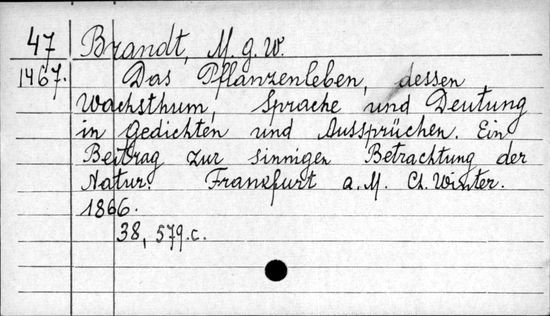 47 Brandt, M. G. W.
1467. Das Pflanzenleben, dessen
Wachsthum, Sprache und Deutung
in Gedichten und Aussprüchen. Ein
Beitrag zur sinnigen Betrachtung der
Natur. Frankfurt a. M. Ch. Winter.
1866.
38, 579.c.